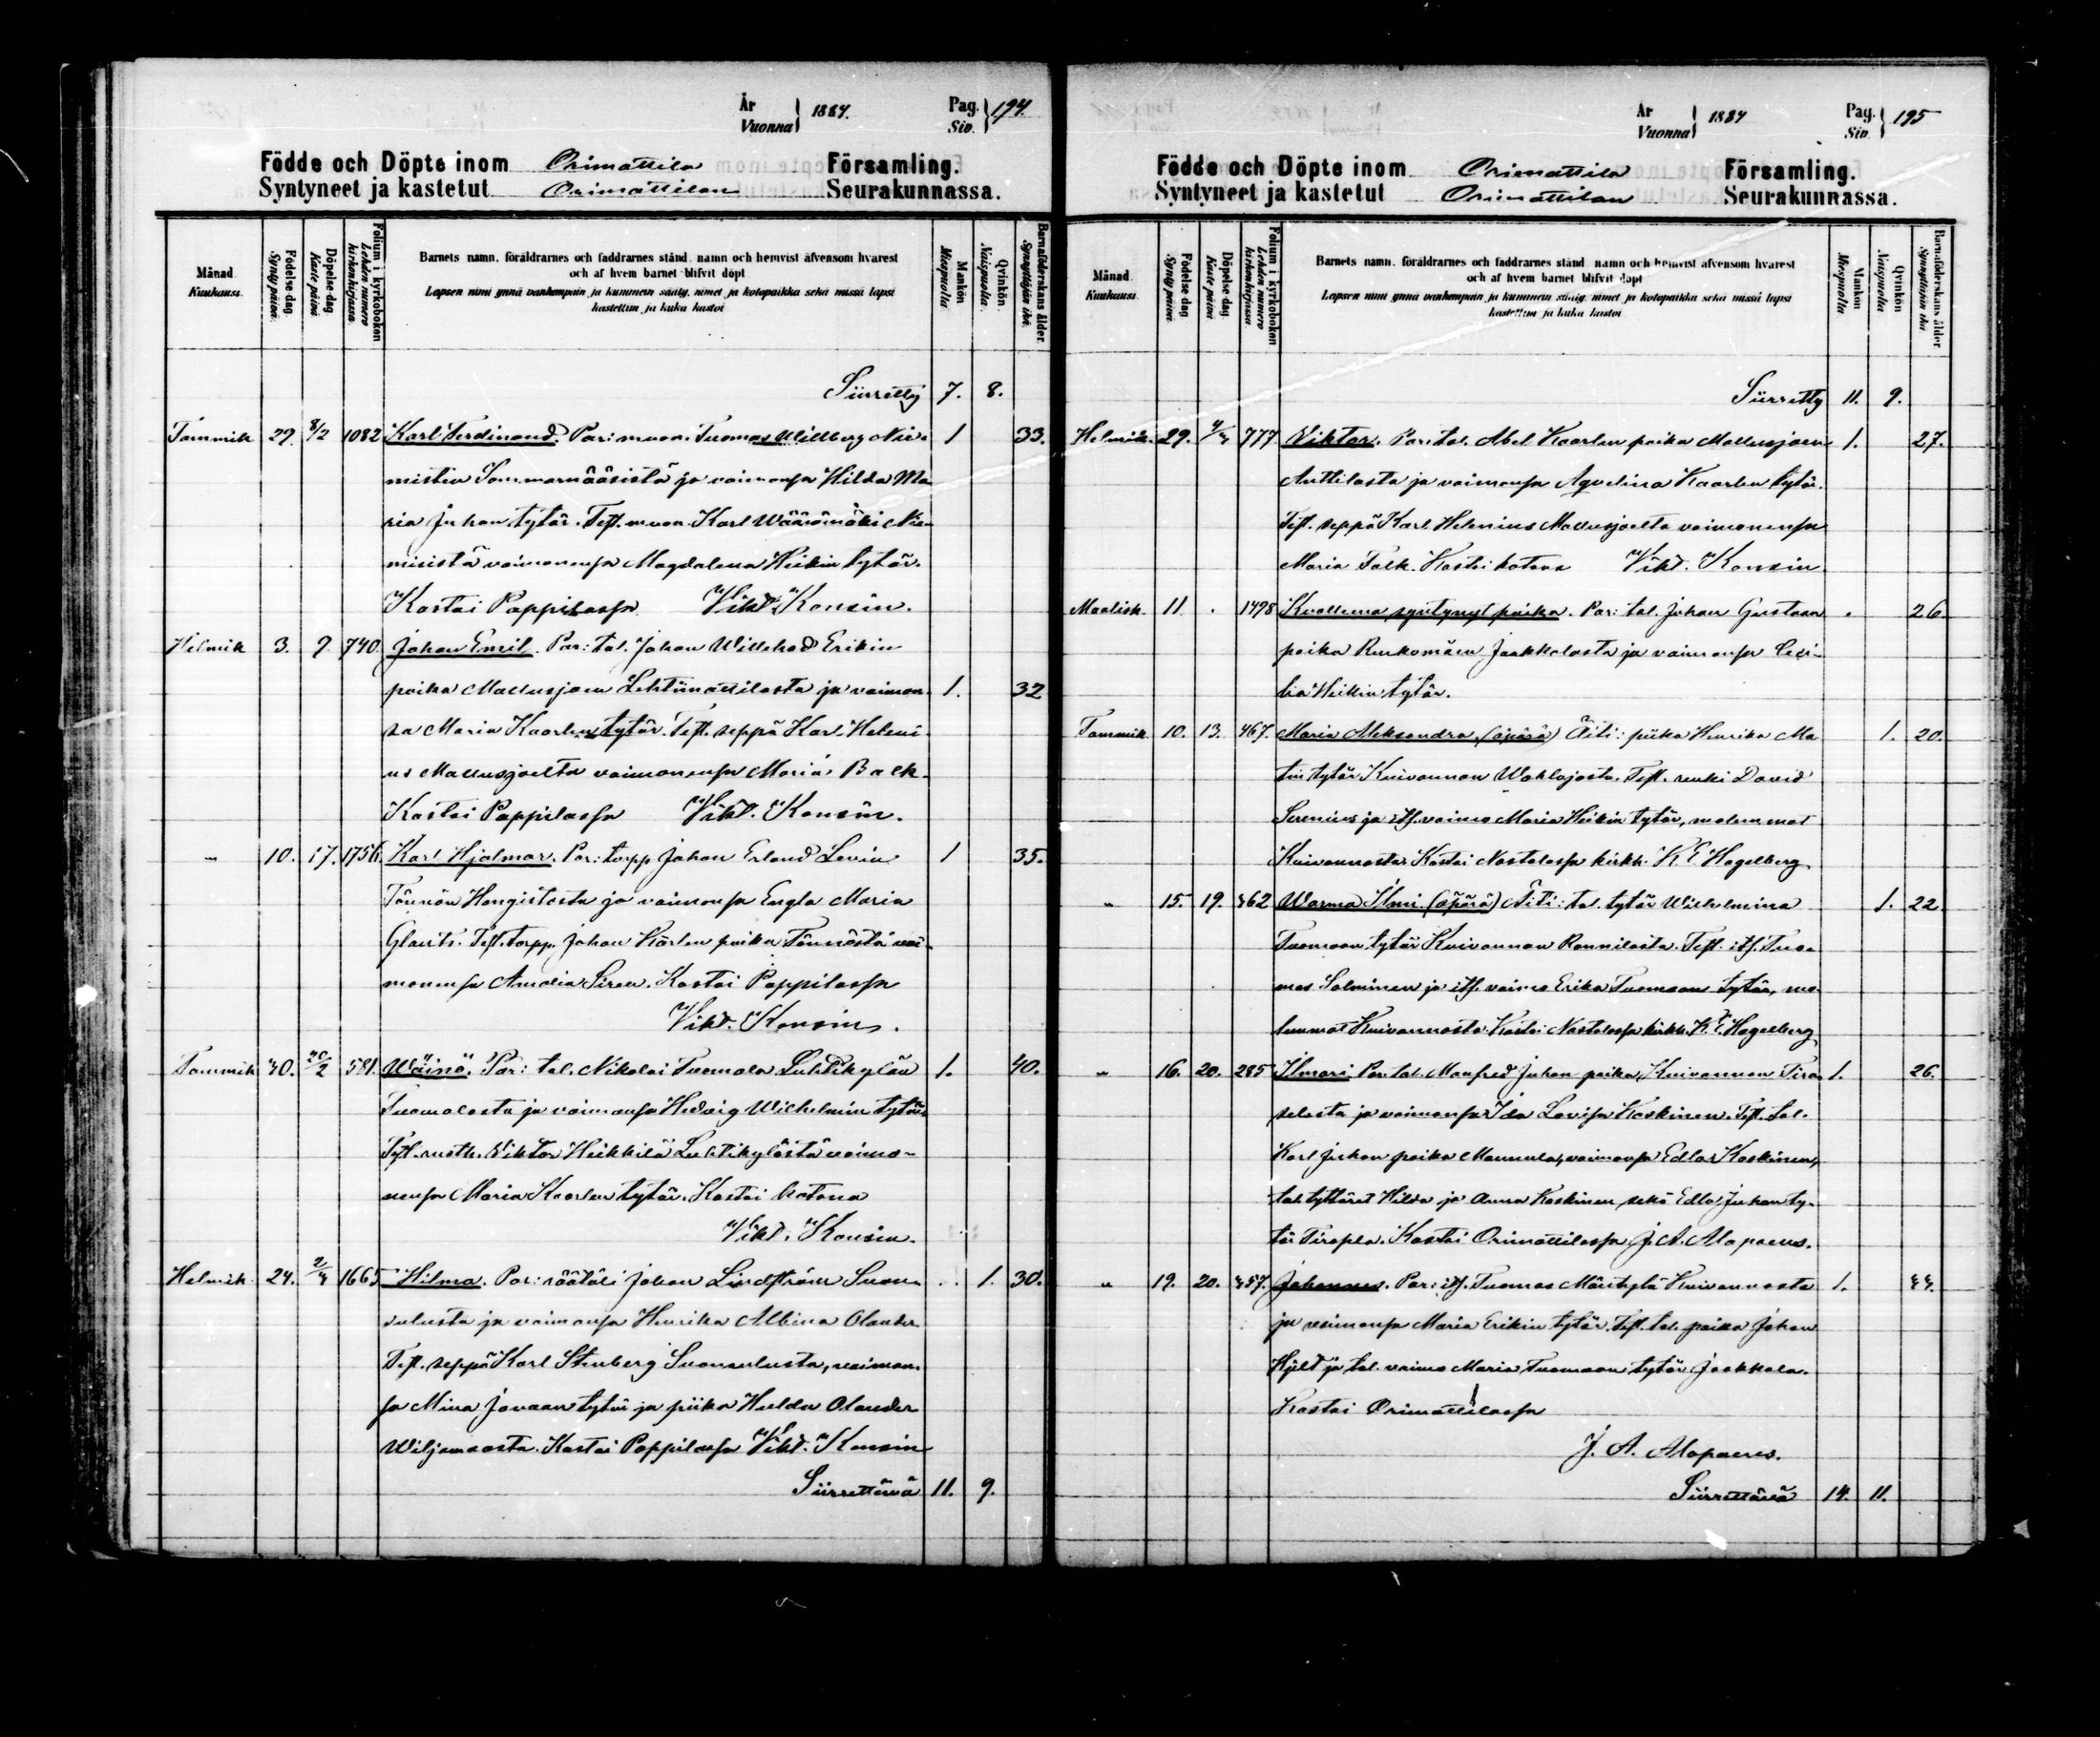 År
Vuonna } 1884.
Pag.
Siv. } 194.
Födde och Döpte inom Orimattila Församling.
Syntyneet ja kastetut Orimattilan Seurakunnassa.
Månad.
Kuukausi.
Födelse dag.
Synty päivä.
Döpelse dag
Kaste päivä
Folium i kyrkoboken
Lehden numero
kirkonkirjassa
Barnets namn, föräldrarnes och faddrarnes stånd, namn och hemvist äfvensom hvarest
och af hvem barnet blifvit döpt
Lapsen nimi ynnä vanhempain ja kummein sääty, nimet ja kotopaikka sekä missä lapsi
kastettun ja kuka kastoi
Mankön
Miespuolta.
Qvinkön.
Naispuolta.
Barnaföderskans ålder.
Synnyttäjän ikä.
Siirretty 7. 8.
Tammik 29. 8/2 1082 Karl Ferdinand. Van: muon. Tuomas Willberg Nie- 1 33.
mistin Sommarnääsistä ja vaimonsa Hilda Ma
ria Juhon tytär. Test. muon. Karl Wääränäki Nie-
misistä vaimonensa Magdalena Heikin tytär.
Kastoi Pappilassa Vikt. Konsin.
Helmik 3. 9. 740. Johan Emil. Van: tal. Johan Willehad Erikin
poika Mallusjoen Lehtimattilasta ja vaimon- 1. 32
sa Maria Kaarlen tytär. Test. seppä Karl Heleni-
us Mallusjoelta vaimonensa Maria Balk.
Kastoi Pappilassa Vikt. Konsin.
" 10. 17. 1756. Karl Hjalmar. Van: torpp. Johan Erland Levin 1 35.
Tönnön Hongistosta ja vaimonsa Engla Maria
Glants. Test. torpp. Johan Kaarlen poika Tönnöstä vai-
monensa Amalia Siren. Kastoi Pappilassa
Vikt. Konsin.
Tammik 30. 20/2 581. Wäinö. Van: tal. Nikolai Tuomala Luhtikylän 1. 40.
Tuomalasta ja vaimonsa Hedvig Wilhelmin tytär.
Test. rusth. Viktor Heikkilä Luhtikylästä vaimo-
nensa Maria Kaarlen tytär. Kastoi kotona
Vikt. Konsin.
Helmik. 24. 2/3 1665 Hilma. Van: räätäli Johan Lindström Suon- . 1. 30.
sulusta ja vaimonsa Henrika Albina Olander
Test. seppä Karl Stenberg Suonsulusta, vaimon-
sa Mina Jovaan tytär ja piika Hulda Olander
Wiljamaasta. Kastoi Pappilassa Vikt. Konsin
Siirrettävä 11. 9.
År
Vuonna } 1884
Pag.
Siv. } 195
Födde och Döpte inom Orimattila Församling.
Syntyneet ja kastetut Orimattilan Seurakunnassa.
Månad.
Kuukausi.
Födelse dag
Synty päivä.
Döpelse dag
Kaste päivä
Folium i kyrkoboken
Lehden numero
kirkonkirjassa
Barnets namn, föräldrarnes och faddrarnes stånd namn och hemvist äfvensom hvarest
och af hvem barnet blifvit döpt
Lapsen nimi ynnä vanhempain ja kummein sääty, nimet ja kotopaikka sekä missä lapsi
kastettun ja kuka kastoi
Mankön
Miespuolta
Qvinkön
Naispuolta
Barnaföderskans ålder
Synnyttäjän ikä
Siirretty 11. 9.
Helmik. 29. 4/3 777. Viktor. Van: tal. Abel Kaarlen poika Mallusjoen 1. 27.
Anttilasta ja vaimonsa Aqvelina Kaarlen tytär.
Test. seppä Karl Helenius Mallusjoelta vaimonensa
Maria Falk. Kastoi kotona Vikt. Konsin
Maalisk. 11. . 1498 Kuollenna syntynyt poika. Van: tal. Johan Gustaan . 26.
poika Renkomäen Jaakkolasta ja vaimonsa Ceci-
lia Heikin tytär.
Tammik 10. 13. 467. Maria Aleksandra. (äpärä) Äiti: piika Henrika Ma 1. 20.
tin tytär Kuivannon Wahlojasta. Test. renki David
Serenius ja its. vaimo Maria Heikin tytär, molemmat
Kuivannosta. Kastoi Nastolassa kirkk. K. E. Hagelberg
" 15. 19. 362 Warma Ilmi. (äpärä) Äiti: tal. tytär Wilhelmina 1. 22.
Tuomaan tytär Kuivannon Rannilasta. Test. its. Tuo-
mas Salminen ja its. vaimo Erika Tuomaan tytär, mo-
lemmat Kuivannosta. Kastoi Nastolassa kirkk. K. E. Hagelberg
" 16. 20. 285 Ilmari. Van: tal. Manfred Juhan poika, Kuivannon Tira- 1. 26.
selasta ja vaimonsa Ida Lovisa Koskinen. Test. tal.
Karl Juhan poika Mannula, vaimonsa Edla Koskinen,
tal. tyttäret Hilda ja Anna Koskinen, sekä Edla Juhan ty-
tär Tirapla. Kastoi Orimattilassa J. A. Alopaeus.
" 19. 20. 357. Johannes. Van: its. Tuomas Mäntylä Kuivannosta 1. 44.
ja vaimonsa Maria Erikin tytär. Test. tal. poika Johan
Hyld ja tal. vaimo Maria Tuomaan tytär Jaakkola.
Kastoi Orimattilassa
J. A. Alopaeus.
Siirrettävä 14. 11.